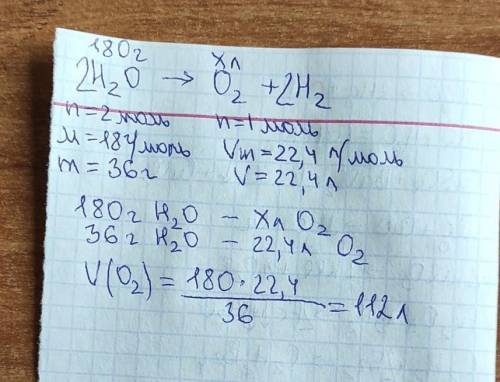 180г xл
2H₂O → O₂ + 2H₂
n=2 моль n=1 моль
M=18г/моль Vm=22,4 л/моль
m=36г V=22,4л
180г H₂O – Xл O₂
36г H₂O – 22,4л O₂
V(O₂) = 180·22,4 / 36 = 112л